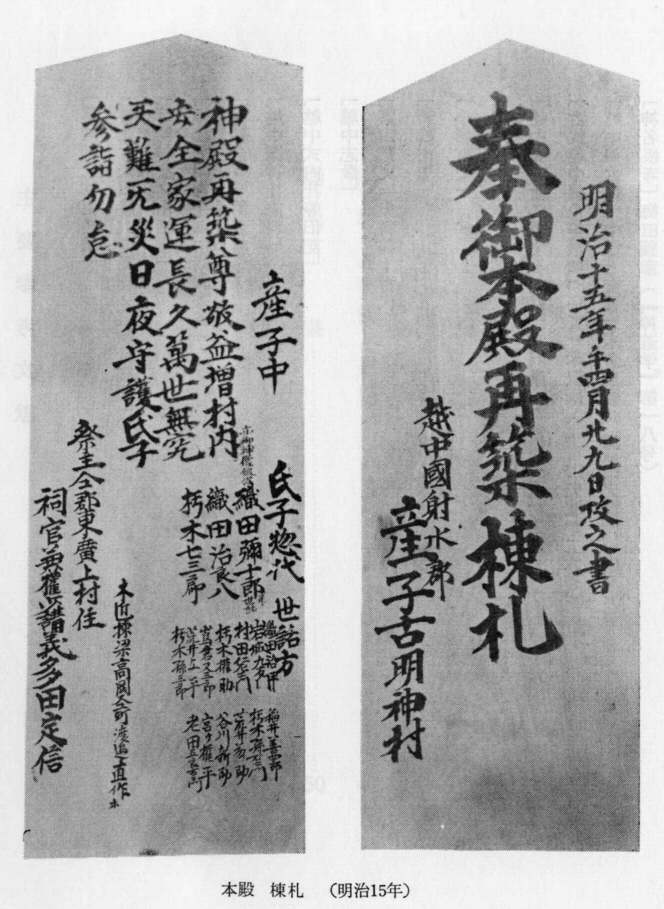 明治十五年壬午四月廿九日改之書
奉御本殿再築棟札
越中國射水郡
産子古明神村
産子中
神殿再築尊敬益増村内
安全家運長久萬世無究
天難无災日夜守護氏子
参詣勿怠
氏子惣代
織田彌十郎
織田治良八
朽木七三郎
世話方
村田
朽木権助
朽木孫三郎
谷川新助
宮可権平
祭主仝郡東廣上村住
祠官兼権少講義多田定信
本殿 棟札 (明治15年)